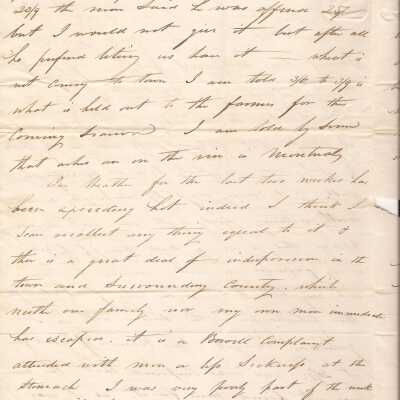 29/9 the man said he was offered 28/
but I would not give it but after all
he prefered letting us have it wheat is
not coming to town I am told 3/6 to 3/9 is
what is held out to the farmers for the
Coming Season I am told by Some
that ashes are on the rise in Montreal
The Weather for the last two weeks has
been exceeding hot indeed I think I
scarce recollect any thing equal to it &
there is a great deal of indisposion in the
town and Surrounding County. which
neither our family nor my own immediate
has escaped. it is a Bowell Complaint
attended with more or less Sickness at the
Stomach I was very poorly part of the week